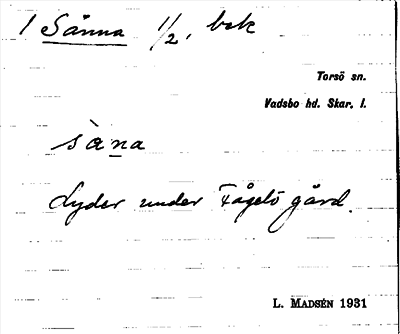 1 Sänna 1/2, bek
Torsö sn.
Vadsbo hd. Skar. l.
sàna
Lyder under Fågelö gård.
L. MADSÉN 1931